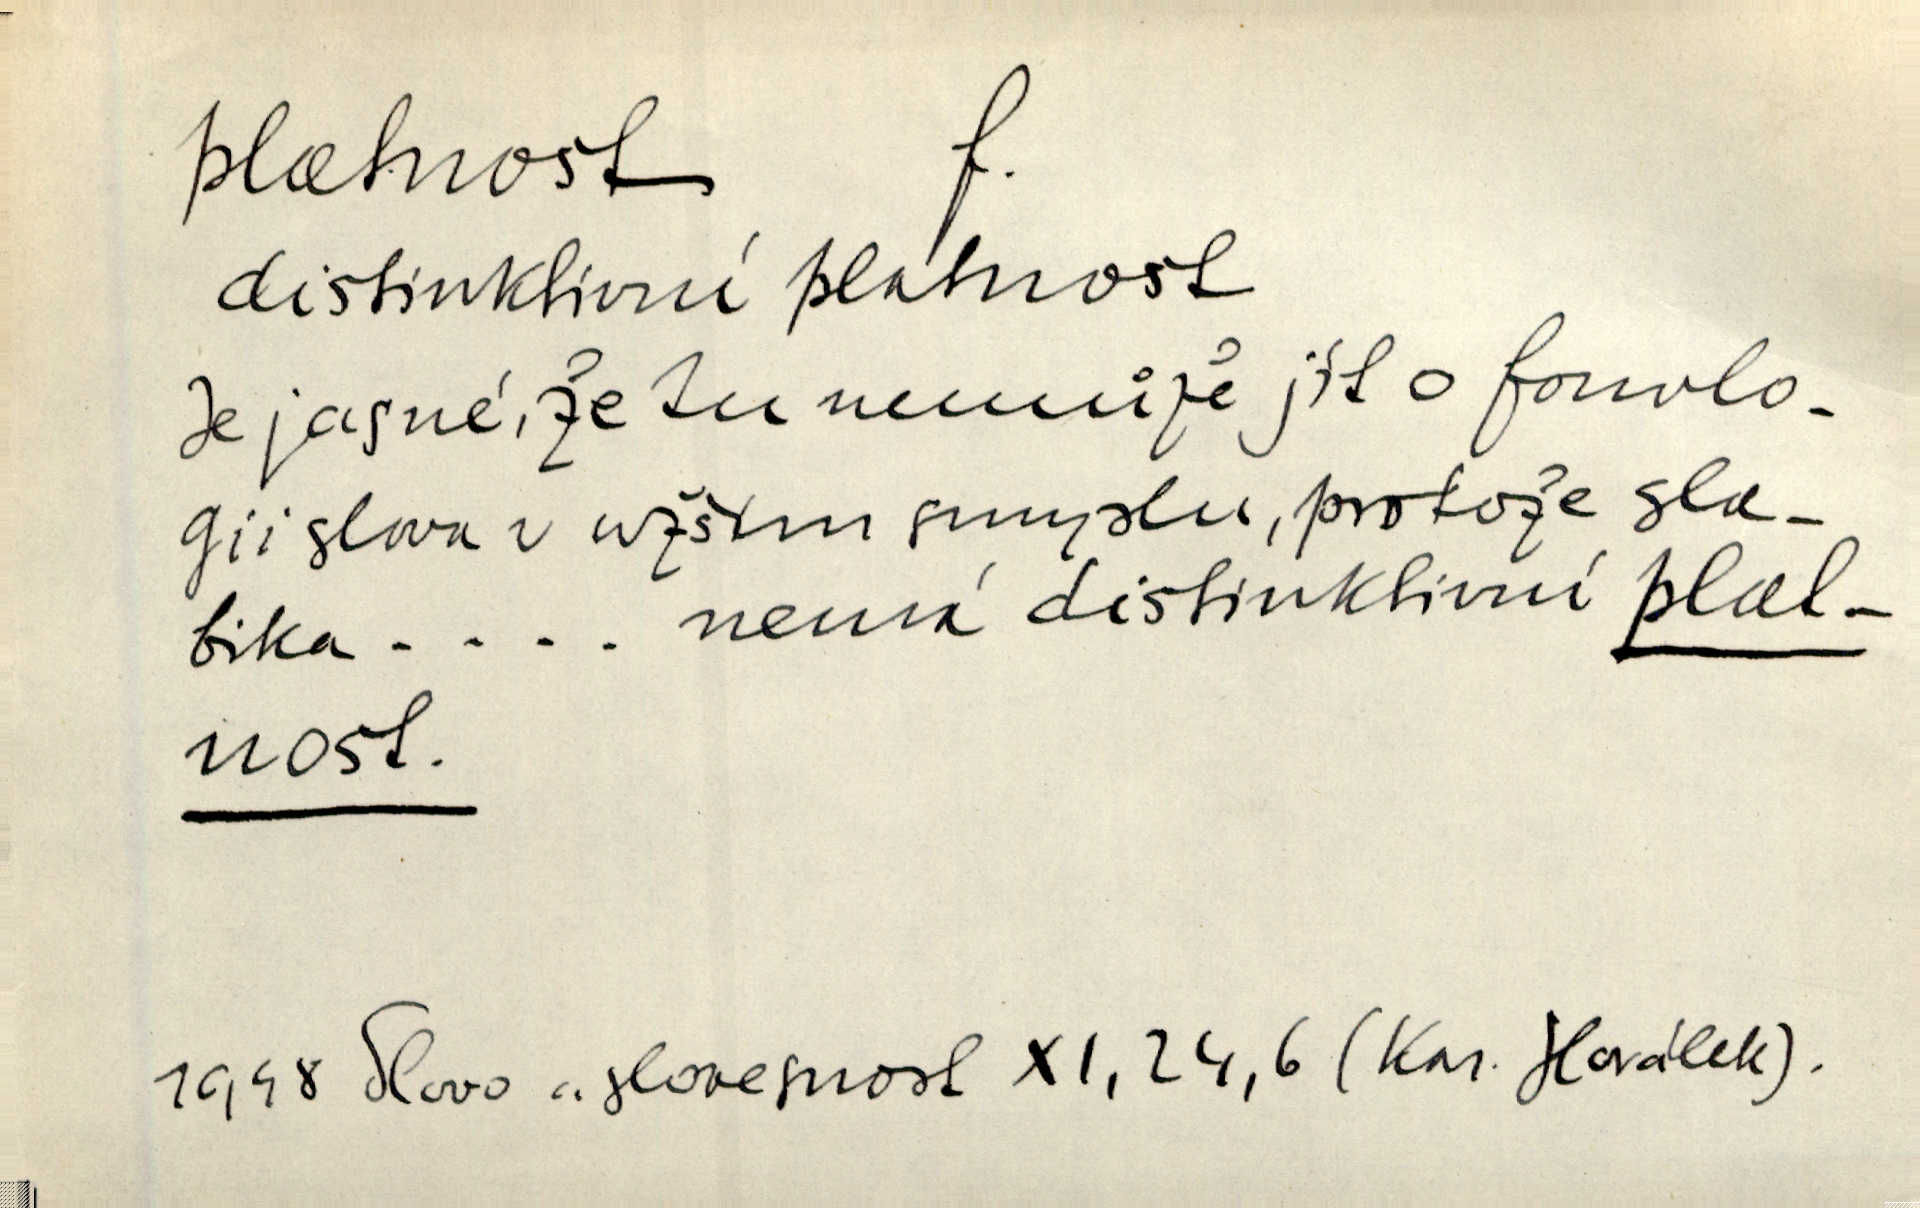 platnost f.
distinktivní platnost
Je jasné, že tu nemůže jít o fonolo-
gii slova v užším smyslu, protože sla-
bika . . . . nemá distinktivní plat-
nost.
1948 Slovo a slovesnost XI, 24, 6 (Kar. Horálek).